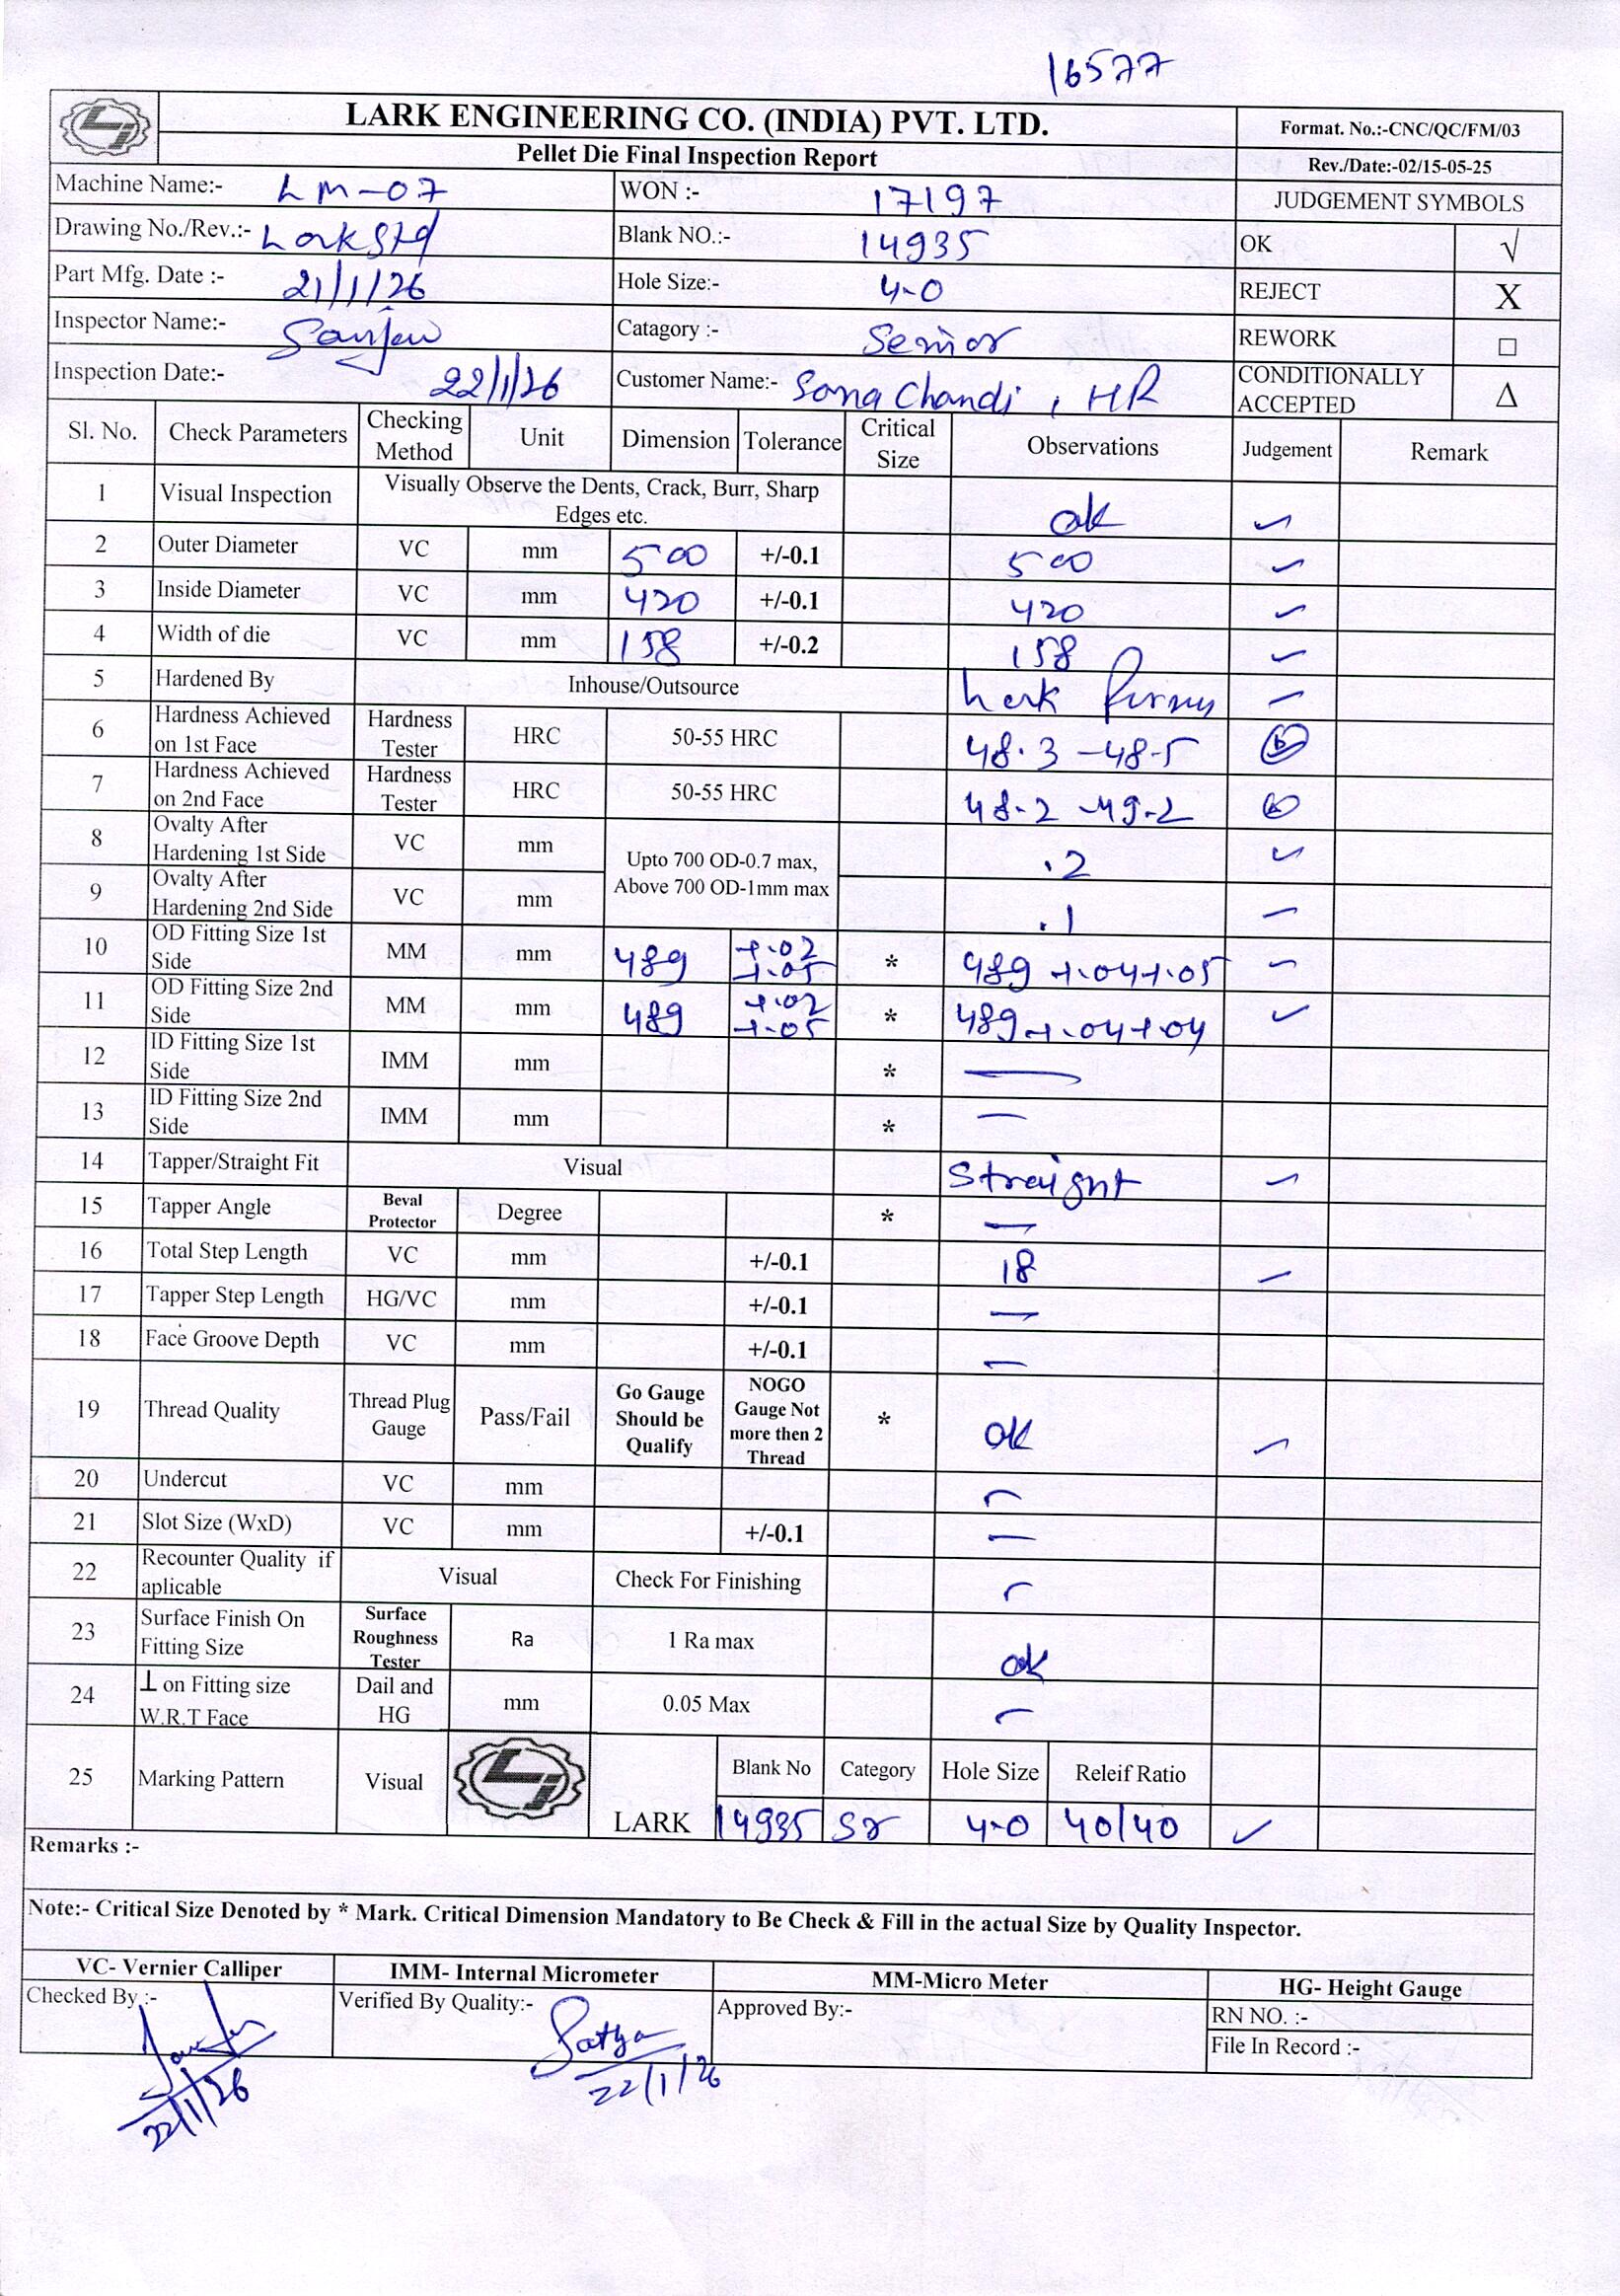 16577
LARK ENGINEERING CO. (INDIA) PVT. LTD.
Format. No.:-CNC/QC/FM/03
Pellet Die Final Inspection Report
Rev./Date:-02/15-05-25
Machine Name:- LM-07 WON :- 17197 JUDGEMENT SYMBOLS
Drawing No./Rev.:- Lark Std Blank NO.:- 14935 OK √
Part Mfg. Date :- 21/1/26 Hole Size:- 4.0 REJECT X
Inspector Name:- Catagory :- Senior REWORK □
Inspection Date:- 22/1/26 Customer Name:- Sona Chandi , HR CONDITIONALLY ACCEPTED Δ
Sl. No. Check Parameters Checking Method Unit Dimension Tolerance Critical Size Observations Judgement Remark
1 Visual Inspection Visually Observe the Dents, Crack, Burr, Sharp Edges etc. ok ✓
2 Outer Diameter VC mm 500 +/-0.1 500 ✓
3 Inside Diameter VC mm 420 +/-0.1 420 ✓
4 Width of die VC mm 158 +/-0.2 158 ✓
5 Hardened By Inhouse/Outsource Lark ✓
6 Hardness Achieved on 1st Face Hardness Tester HRC 50-55 HRC 48.3 -48.5
7 Hardness Achieved on 2nd Face Hardness Tester HRC 50-55 HRC 48.2 -49.2
8 Ovalty After Hardening 1st Side VC mm Upto 700 OD-0.7 max, Above 700 OD-1mm max .2 ✓
9 Ovalty After Hardening 2nd Side VC mm .1 ✓
10 OD Fitting Size 1st Side MM mm 489 +.02 +.05 * 489 +.04+.05 ✓
11 OD Fitting Size 2nd Side MM mm 489 +.02 +.05 * 489 +.04+.04 ✓
12 ID Fitting Size 1st Side IMM mm * —
13 ID Fitting Size 2nd Side IMM mm * —
14 Tapper/Straight Fit Visual Straight ✓
15 Tapper Angle Beval Protector Degree * —
16 Total Step Length VC mm +/-0.1 18 ✓
17 Tapper Step Length HG/VC mm +/-0.1 —
18 Face Groove Depth VC mm +/-0.1 —
19 Thread Quality Thread Plug Gauge Pass/Fail Go Gauge Should be Qualify NOGO Gauge Not more then 2 Thread * ok ✓
20 Undercut VC mm —
21 Slot Size (WxD) VC mm +/-0.1 —
22 Recounter Quality if aplicable Visual Check For Finishing —
23 Surface Finish On Fitting Size Surface Roughness Tester Ra 1 Ra max ok
24 ⊥ on Fitting size W.R.T Face Dail and HG mm 0.05 Max —
25 Marking Pattern Visual LARK Blank No Category Hole Size Releif Ratio
14935 Sr 4.0 40/40 ✓
Remarks :-
Note:- Critical Size Denoted by * Mark. Critical Dimension Mandatory to Be Check & Fill in the actual Size by Quality Inspector.
VC- Vernier Calliper IMM- Internal Micrometer MM-Micro Meter HG- Height Gauge
Checked By :- Verified By Quality:- Satya Approved By:- RN NO. :-
File In Record :-
22/1/26 22/1/26